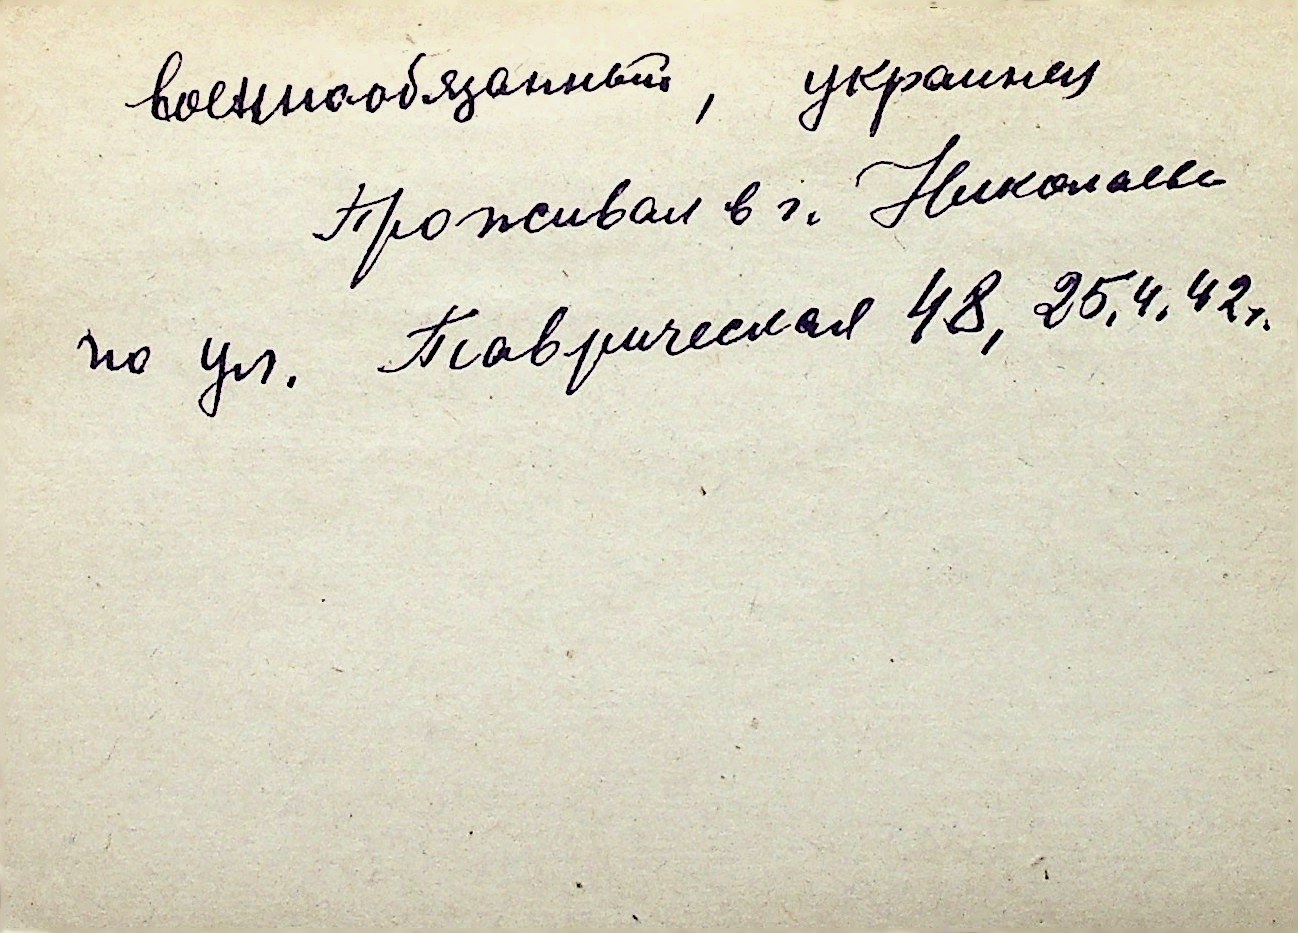 военнообязанный, украинец
Проживал в г. Николаеве
по ул. Таврическая 48, 25.4.42г.